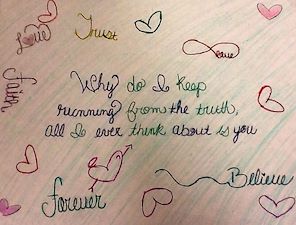 Love
Trust
Love
Faith
Why do I keep
running from the truth,
all I ever think about is you
Forever
Believe